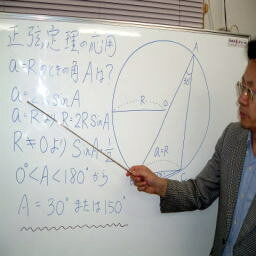 正弦定理の応用
a=Rのときの角Aは?
a=2RsinA
a=Rより R=2RSinA
R≠0より SinA=1/2
0°<A<180°から
A=30°または150°
A
30°
R
O
a=R
C